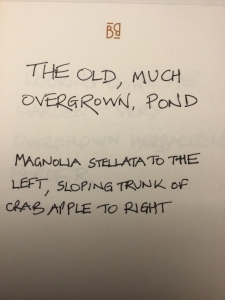 THE OLD, MUCH
OVERGROWN, POND
MAGNOLIA STELLATA TO THE
LEFT, SLOPING TRUNK OF
CRAB APPLE TO RIGHT